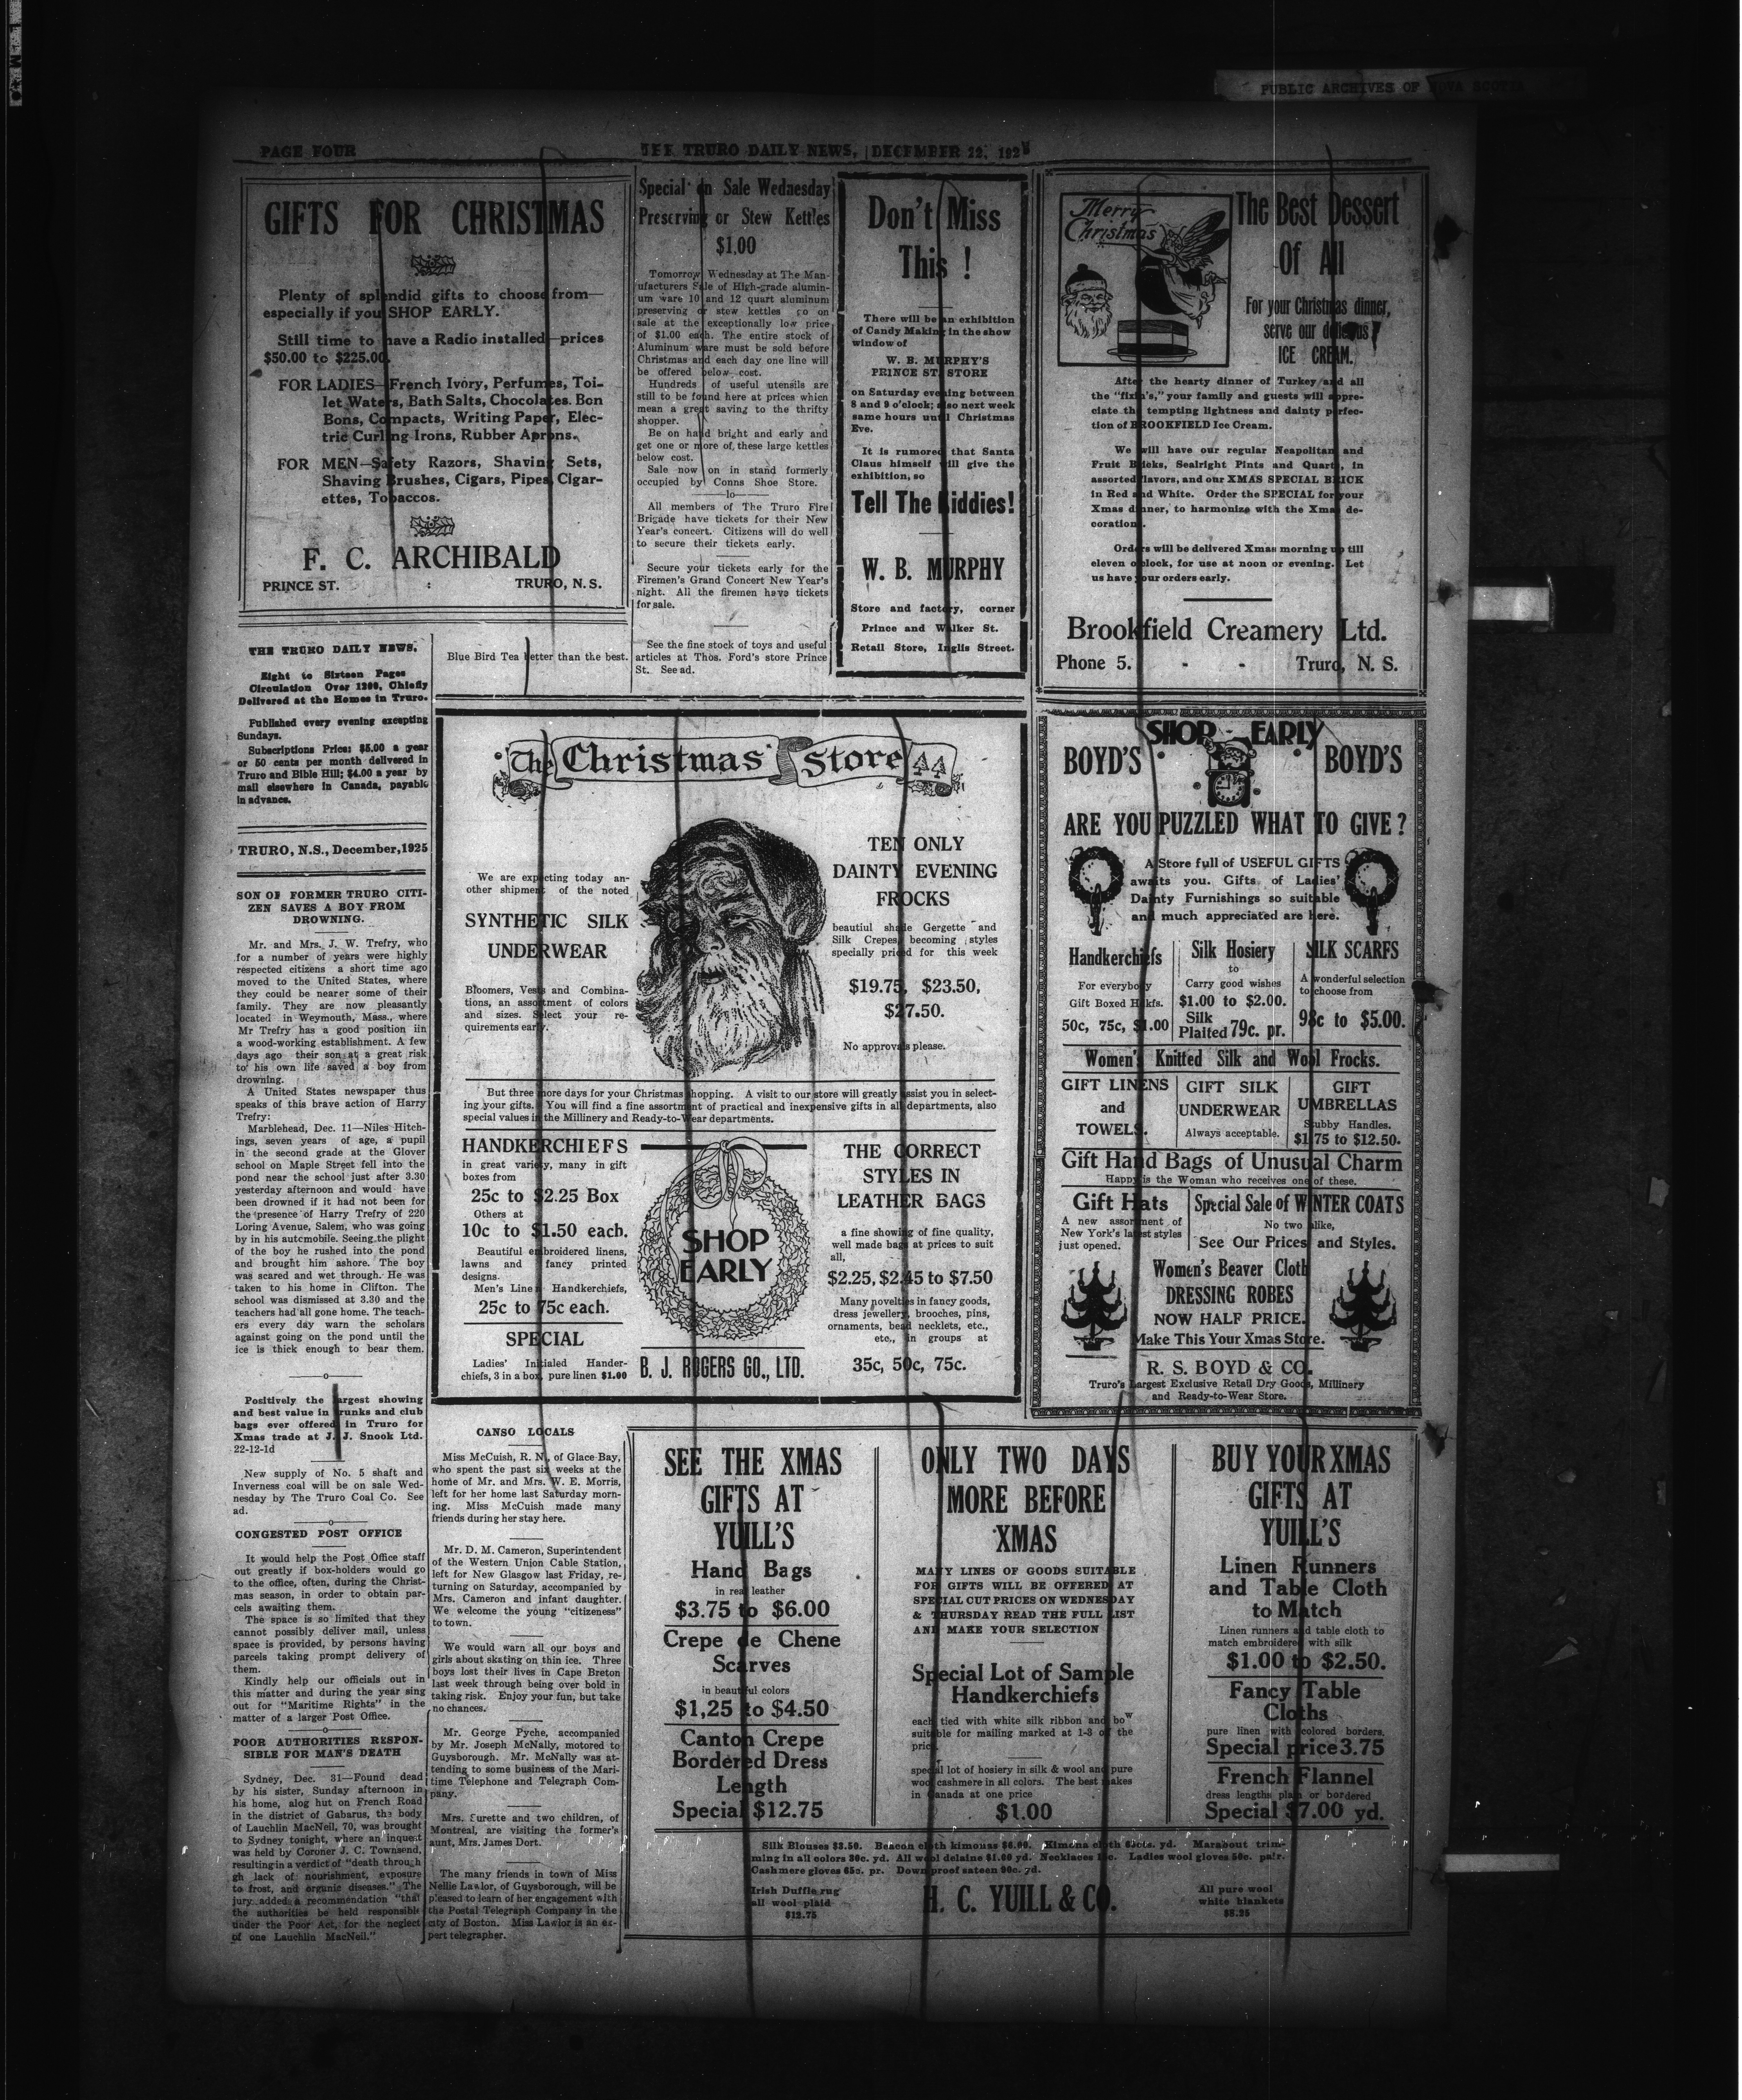 PUBLIC ARCHIVES OF NOVA SCOTIA
PAGE FOUR
THE TRURO DAILY NEWS, DECEMBER 22, 192
GIFTS FOR CHRISTMAS
Plenty of splendid gifts to choose from—
especially if you SHOP EARLY.
Still time to have a Radio installed—prices
$50.00 to $225.00
FOR LADIES—French Ivory, Perfumes, Toi-
let Waters, Bath Salts, Chocolates. Bon
Bons, Compacts, Writing Paper, Elec-
tric Curling Irons, Rubber Aprons.
FOR MEN—Safety Razors, Shaving Sets,
Shaving Brushes, Cigars, Pipes, Cigar-
ettes, Tobaccos.
F. C. ARCHIBALD
PRINCE ST. : TRURO, N.S.
Special on Sale Wednesday
Preserving or Stew Kettles
$1.00
Tomorrow Wednesday at The Man-
ufacturers Sale of High-grade alumin-
um ware 10 and 12 quart aluminum
preserving or stew kettles go on
sale at the exceptionally low price
of $1.00 each. The entire stock of
Aluminum ware must be sold before
Christmas and each day one line will
be offered below cost.
Hundreds of useful utensils are
still to be found here at prices which
mean a great saving to the thrifty
shopper.
Be on hand bright and early and
get one or more of these large kettles
below cost.
Sale now on in stand formerly
occupied by Conns Shoe Store.
—lo—
All members of The Truro Fire
Brigade have tickets for their New
Year's concert. Citizens will do well
to secure their tickets early.
Secure your tickets early for the
Firemen's Grand Concert New Year's
night. All the firemen have tickets
for sale.
See the fine stock of toys and useful
articles at Thos. Ford's store Prince
St. See ad.
Don't Miss
This !
There will be an exhibition
of Candy Making in the show
window of
W. B. MURPHY'S
PRINCE ST. STORE
on Saturday evening between
8 and 9 o'clock; also next week
same hours until Christmas
Eve.
It is rumored that Santa
Claus himself will give the
exhibition, so
Tell The Kiddies!
W. B. MURPHY
Store and factory, corner
Prince and Walker St.
Retail Store, Inglis Street.
Merry
Christmas
The Best Dessert
Of All
For your Christmas dinner,
serve our delicious
ICE CREAM.
After the hearty dinner of Turkey and all
the "fixin's," your family and guests will appre-
ciate the tempting lightness and dainty perfec-
tion of BROOKFIELD Ice Cream.
We will have our regular Neapolitan and
Fruit Bricks, Sealright Pints and Quarts, in
assorted flavors, and our XMAS SPECIAL BRICK
in Red and White. Order the SPECIAL for your
Xmas dinner, to harmonize with the Xmas de-
corations.
Orders will be delivered Xmas morning up till
eleven o'clock, for use at noon or evening. Let
us have your orders early.
Brookfield Creamery Ltd.
Phone 5. - - Truro, N. S.
THE TRURO DAILY NEWS.
Eight to Sixteen Pages
Circulation Over 1200, Chiefly
Delivered at the Homes in Truro.
Published every evening excepting
Sundays.
Subscriptions Price: $5.00 a year
or 50 cents per month delivered in
Truro and Bible Hill; $4.00 a year by
mail elsewhere in Canada, payable
in advance.
TRURO, N.S., December, 1925
SON OF FORMER TRURO CITI-
ZEN SAVES A BOY FROM
DROWNING.
Mr. and Mrs. J. W. Trefry, who
for a number of years were highly
respected citizens a short time ago
moved to the United States, where
they could be nearer some of their
family. They are now pleasantly
located in Weymouth, Mass., where
Mr Trefry has a good position iin
a wood-working establishment. A few
days ago their son at a great risk
to his own life saved a boy from
drowning.
A United States newspaper thus
speaks of this brave action of Harry
Trefry:
Marblehead, Dec. 11—Niles Hitch-
ings, seven years of age, a pupil
in the second grade at the Glover
school on Maple Street fell into the
pond near the school just after 3.30
yesterday afternoon and would have
been drowned if it had not been for
the presence of Harry Trefry of 220
Loring Avenue, Salem, who was going
by in his automobile. Seeing the plight
of the boy he rushed into the pond
and brought him ashore. The boy
was scared and wet through. He was
taken to his home in Clifton. The
school was dismissed at 3.30 and the
teachers had all gone home. The teach-
ers every day warn the scholars
against going on the pond until the
ice is thick enough to bear them.
—o—
Positively the largest showing
and best value in trunks and club
bags ever offered in Truro for
Xmas trade at J. J. Snook Ltd.
22-12-1d
New supply of No. 5 shaft and
Inverness coal will be on sale Wed-
nesday by The Truro Coal Co. See
ad.
—o—
CONGESTED POST OFFICE
It would help the Post Office staff
out greatly if box-holders would go
to the office, often, during the Christ-
mas season, in order to obtain par-
cels awaiting them.
The space is so limited that they
cannot possibly deliver mail, unless
space is provided, by persons having
parcels taking prompt delivery of
them.
Kindly help our officials out in
this matter and during the year sing
out for "Maritime Rights" in the
matter of a larger Post Office.
—o—
POOR AUTHORITIES RESPON-
SIBLE FOR MAN'S DEATH
Sydney, Dec. 31—Found dead
by his sister, Sunday afternoon in
his home, alog hut on French Road
in the district of Gabarus, the body
of Lauchlin MacNeil, 70, was brought
to Sydney tonight, where an inquest
was held by Coroner J. C. Townsend,
resulting in a verdict of "death throuh
gh lack of nourishment, exposure
to frost, and organic diseases." The
jury added a recommendation "that
the authorities be held responsible
under the Poor Act, for the neglect
of one Lauchlin MacNeil."
Blue Bird Tea better than the best.
The Christmas Store
We are expecting today an-
other shipment of the noted
SYNTHETIC SILK
UNDERWEAR
Bloomers, Vests and Combina-
tions, an assortment of colors
and sizes. Select your re-
quirements early.
TEN ONLY
DAINTY EVENING
FROCKS
beautiul shade Gergette and
Silk Crepes, becoming styles
specially priced for this week
$19.75, $23.50,
$27.50.
No approvals please.
But three more days for your Christmas shopping. A visit to our store will greatly assist you in select-
ing your gifts. You will find a fine assortment of practical and inexpensive gifts in all departments, also
special values in the Millinery and Ready-to-Wear departments.
HANDKERCHIEFS
in great variety, many in gift
boxes from
25c to $2.25 Box
Others at
10c to $1.50 each.
Beautiful embroidered linens,
lawns and fancy printed
designs.
Men's Linen Handkerchiefs,
25c to 75c each.
SPECIAL
Ladies' Initialed Hander-
chiefs, 3 in a box, pure linen $1.00
SHOP
EARLY
B. J. ROGERS CO., LTD.
THE CORRECT
STYLES IN
LEATHER BAGS
a fine showing of fine quality,
well made bags at prices to suit
all,
$2.25, $2.45 to $7.50
Many novelties in fancy goods,
dress jewellery, brooches, pins,
ornaments, bead necklets, etc.,
etc., in groups at
35c, 50c, 75c.
SHOP EARLY
BOYD'S BOYD'S
ARE YOU PUZZLED WHAT TO GIVE?
A Store full of USEFUL GIFTS
awaits you. Gifts of Ladies'
Dainty Furnishings so suitable
and much appreciated are here.
Handkerchiefs
For everybody
Gift Boxed Hdkfs.
50c, 75c, $1.00
Silk Hosiery
to
Carry good wishes
$1.00 to $2.00.
Silk
Plaited 79c. pr.
SILK SCARFS
A wonderful selection
to choose from
98c to $5.00.
Women's Knitted Silk and Wool Frocks.
GIFT LINENS
and
TOWELS.
GIFT SILK
UNDERWEAR
Always acceptable.
GIFT
UMBRELLAS
Stubby Handles.
$1.75 to $12.50.
Gift Hand Bags of Unusual Charm
Happy is the Woman who receives one of these.
Gift Hats
A new assortment of
New York's latest styles
just opened.
Special Sale of WINTER COATS
No two alike,
See Our Prices and Styles.
Women's Beaver Cloth
DRESSING ROBES
NOW HALF PRICE.
Make This Your Xmas Store.
R. S. BOYD & CO.
Truro's Largest Exclusive Retail Dry Goods, Millinery
and Ready-to-Wear Store.
CANSO LOCALS
Miss McCuish, R. N., of Glace Bay,
who spent the past six weeks at the
home of Mr. and Mrs. W. E. Morris,
left for her home last Saturday morn-
ing. Miss McCuish made many
friends during her stay here.
Mr. D. M. Cameron, Superintendent
of the Western Union Cable Station,
left for New Glasgow last Friday, re-
turning on Saturday, accompanied by
Mrs. Cameron and infant daughter.
We welcome the young "citizeness"
to town.
We would warn all our boys and
girls about skating on thin ice. Three
boys lost their lives in Cape Breton
last week through being over bold in
taking risk. Enjoy your fun, but take
no chances.
Mr. George Pyche, accompanied
by Mr. Joseph McNally, motored to
Guysborough. Mr. McNally was at-
tending to some business of the Mari-
time Telephone and Telegraph Com-
pany.
Mrs. Surette and two children, of
Montreal, are visiting the former's
aunt, Mrs. James Dort.
The many friends in town of Miss
Nellie Lawlor, of Guysborough, will be
pleased to learn of her engagement with
the Postal Telegraph Company in the
city of Boston. Miss Lawlor is an ex-
pert telegrapher.
SEE THE XMAS
GIFTS AT
YUILL'S
Hand Bags
in real leather
$3.75 to $6.00
Crepe de Chene
Scarves
in beautiful colors
$1,25 to $4.50
Canton Crepe
Bordered Dress
Length
Special $12.75
ONLY TWO DAYS
MORE BEFORE
XMAS
MANY LINES OF GOODS SUITABLE
FOR GIFTS WILL BE OFFERED AT
SPECIAL CUT PRICES ON WEDNESDAY
& THURSDAY READ THE FULL LIST
AND MAKE YOUR SELECTION
Special Lot of Sample
Handkerchiefs
each tied with white silk ribbon and bow
suitable for mailing marked at 1-3 of the
price.
special lot of hosiery in silk & wool and pure
wool cashmere in all colors. The best makes
in Canada at one price
$1.00
BUY YOUR XMAS
GIFTS AT
YUILL'S
Linen Runners
and Table Cloth
to Match
Linen runners and table cloth to
match embroidered with silk
$1.00 to $2.50.
Fancy Table
Cloths
pure linen with colored borders,
Special price 3.75
French Flannel
dress lengths plain or bordered
Special $7.00 yd.
Silk Blouses $3.50. Beacon cloth kimonas $6.00. Kimona cloth cts. yd. Marabout trim-
ming in all colors 30c. yd. All wool delaine $1.00 yd. Necklaces Ladies wool gloves 50c. pair.
Cashmere gloves 65c. pr. Down proof sateen 90c. yd.
Irish Duffle rug
all wool plaid
$12.75
H. C. YUILL & CO.
All pure wool
white blankets
$8.25